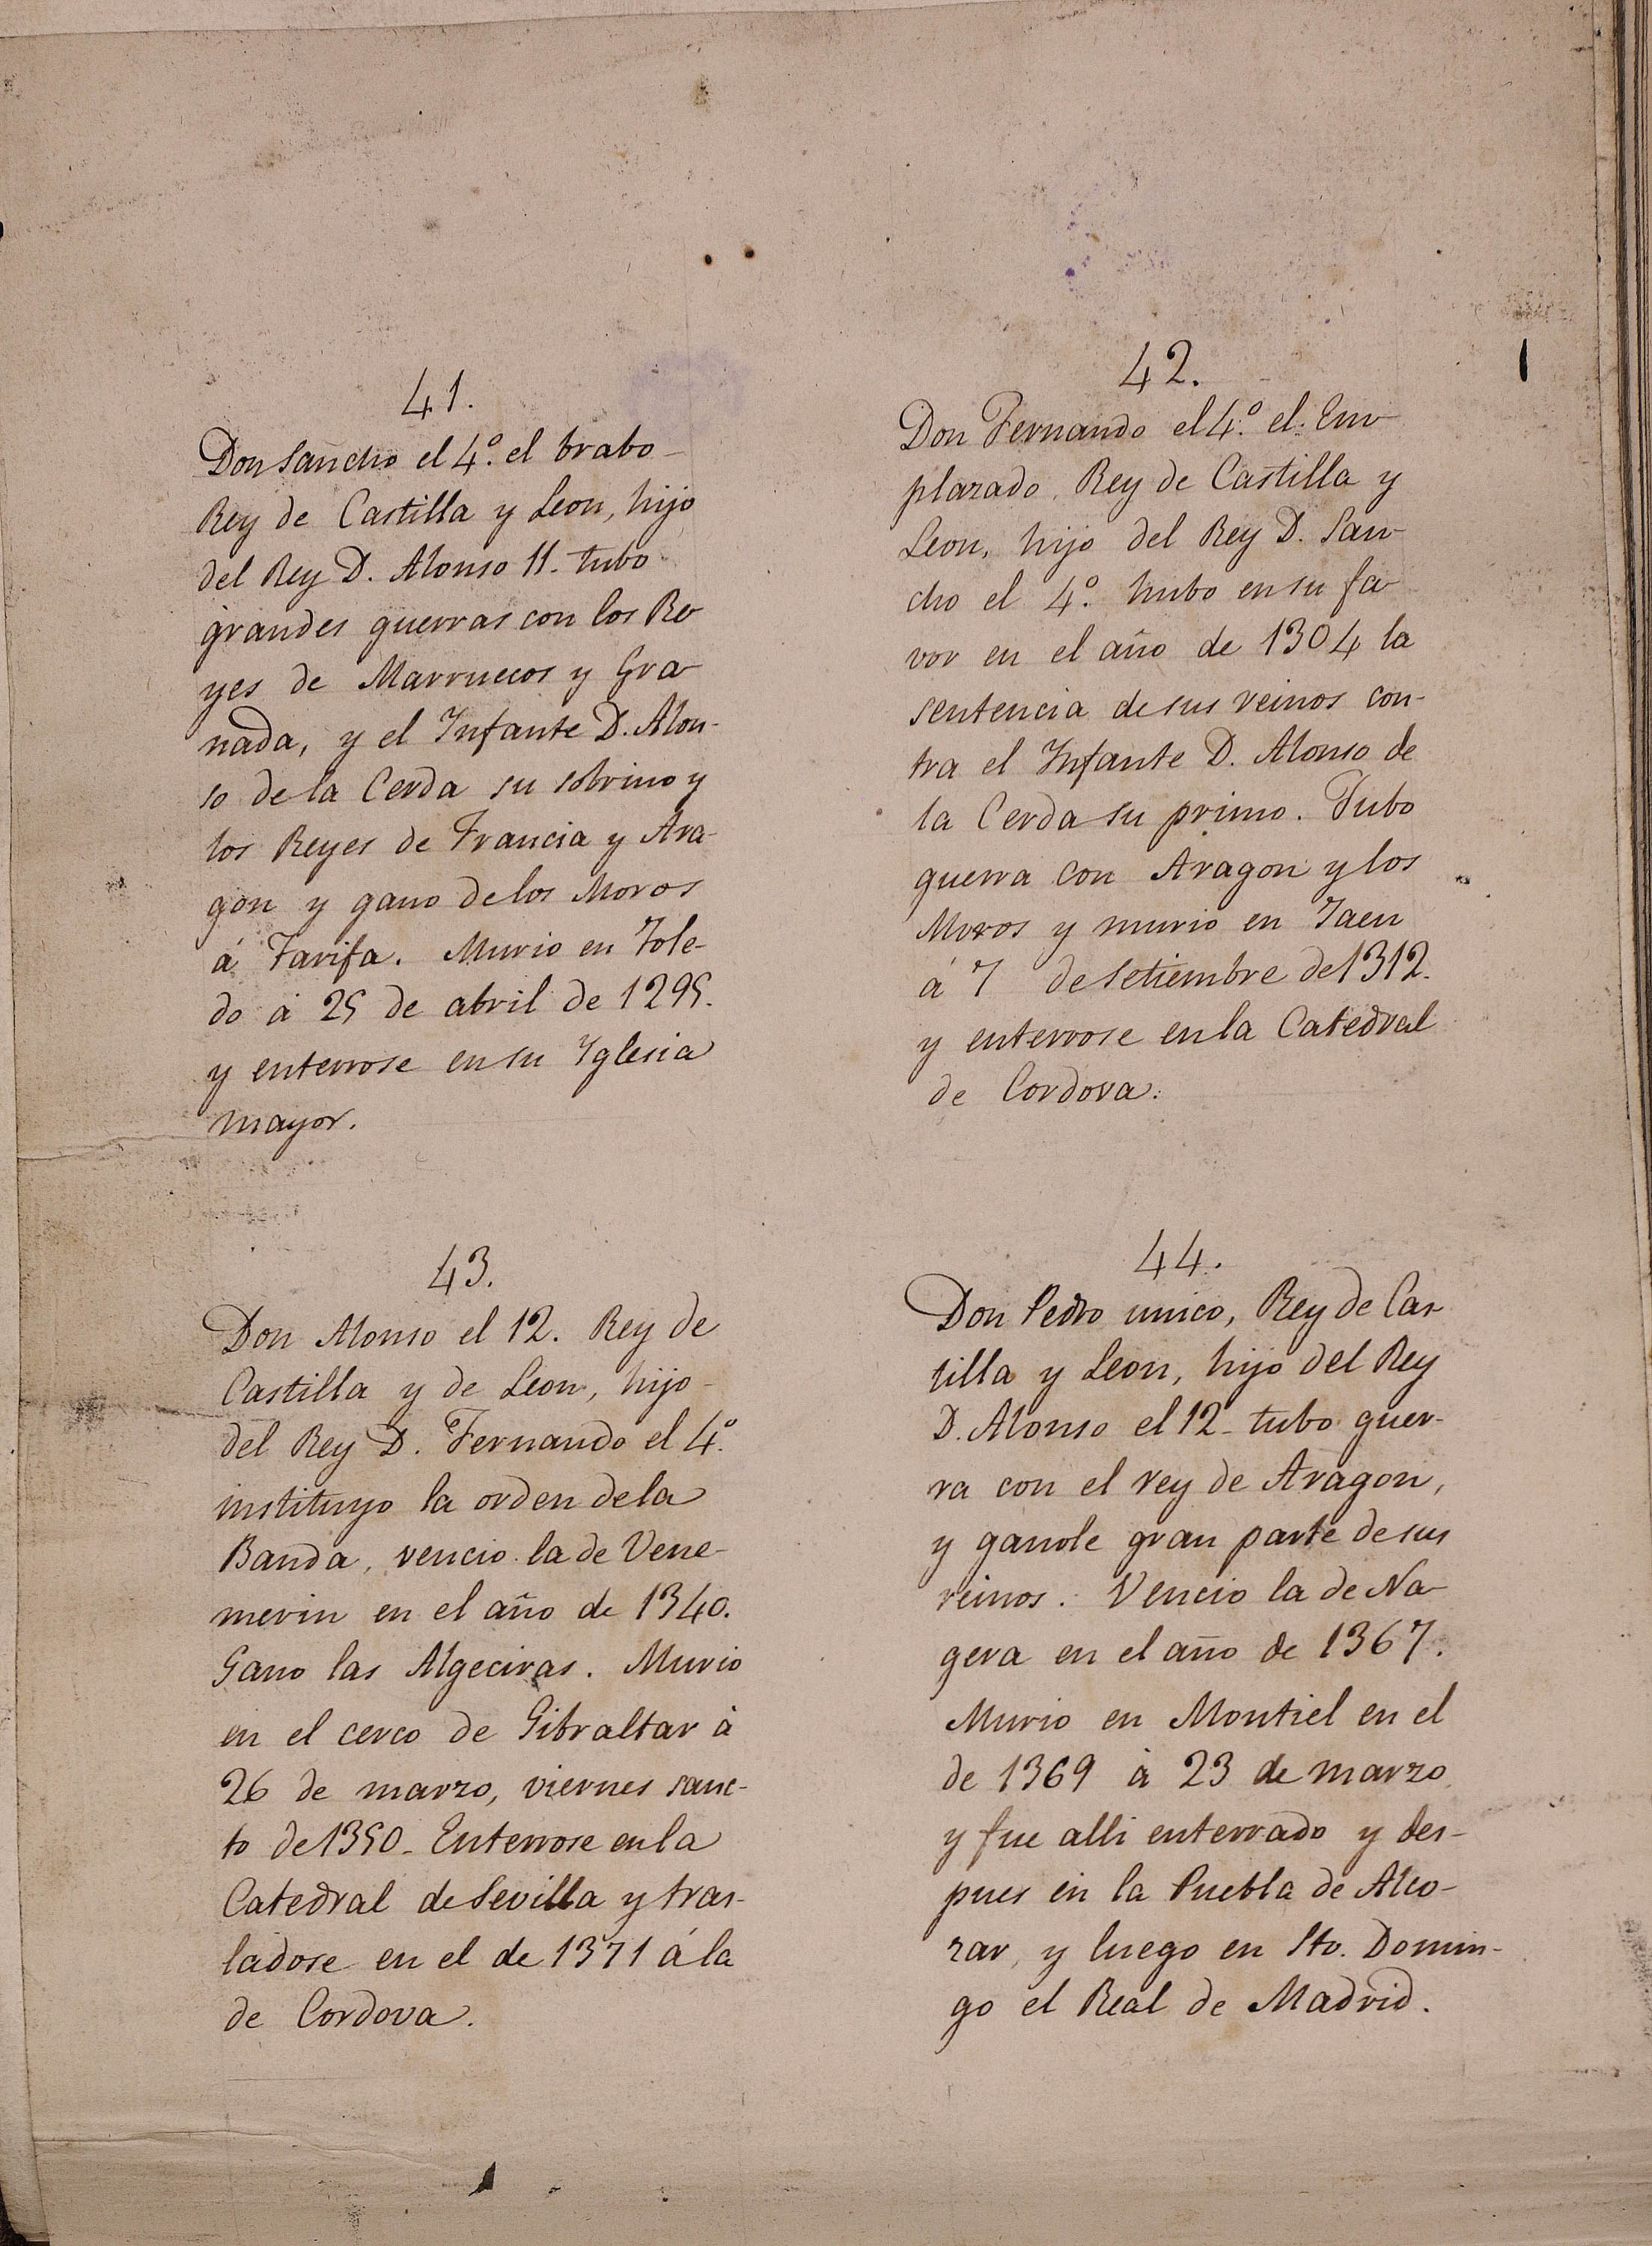 41.
Don Sancho el 4.º el brabo
Rey de Castilla y Leon, hijo
del Rey D. Alonso 11. tubo
grandes guerras con los Re
yes de Marruecos y Gra
nada, y el Infante D. Alon-
so de la Cerda su sobrino y
los Reyes de Francia y Ara-
gon y gano de los Moros
á Tarifa. Murio en Tole-
do á 25 de abril de 1295.
y enterrose en su Yglesia
mayor.
42.
Don Fernando el 4.º el Em-
plazado, Rey de Castilla y
Leon, hijo del Rey D. San-
cho el 4.º hubo en su fa
vor en el año de 1304 la
sentencia de sus reinos con-
tra el Infante D. Alonso de
la Cerda su primo. Tubo
guerra con Aragon y los
Moros y murio en Jaen
á 7 de Setiembre de 1312.
y enterrose en la Catedral
de Cordova.
43.
Don Alonso el 12. Rey de
Castilla y de Leon, hijo
del Rey D. Fernando el 4.º
instituyo la orden de la
Banda, vencio la de Vene-
merin en el año de 1340.
Gano las Algeciras. Murio
en el cerco de Gibraltar à
26 de marzo, viernes sanc-
to de 1350. Enterrose en la
Catedral de Sevilla y tras-
ladose en el de 1371 á la
de Cordova.
44.
Don Pedro unico, Rey de Cas-
tilla y Leon, hijo del Rey
D. Alonso el 12. tubo guer-
ra con el rey de Aragon,
y ganole gran parte de sus
reinos. Vencio la de Na-
gera en el año de 1367.
Murio en Montiel en el
de 1369 à 23 de marzo
y fue alli enterrado y des-
pues en la Puebla de Alco-
zar, y luego en Sto. Domin-
go el Real de Madrid.